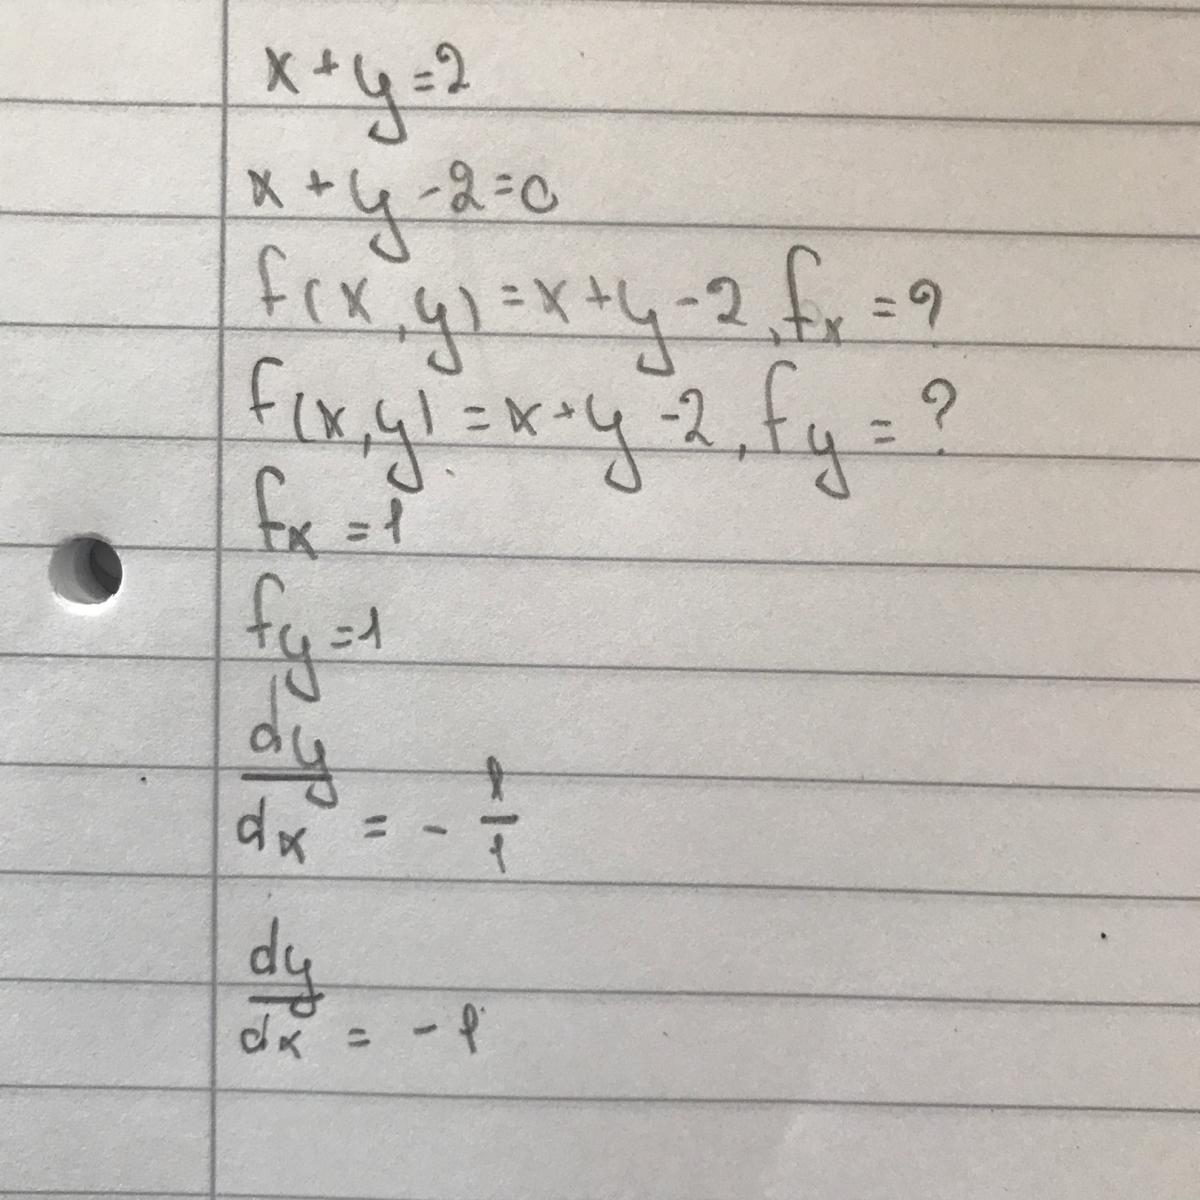 x + y = 2
x + y - 2 = 0
f(x,y) = x + y - 2, fx = ?
f(x,y) = x + y - 2, fy = ?
fx = 1
fy = 1
dy/dx = - 1/1
dy/dx = - 1